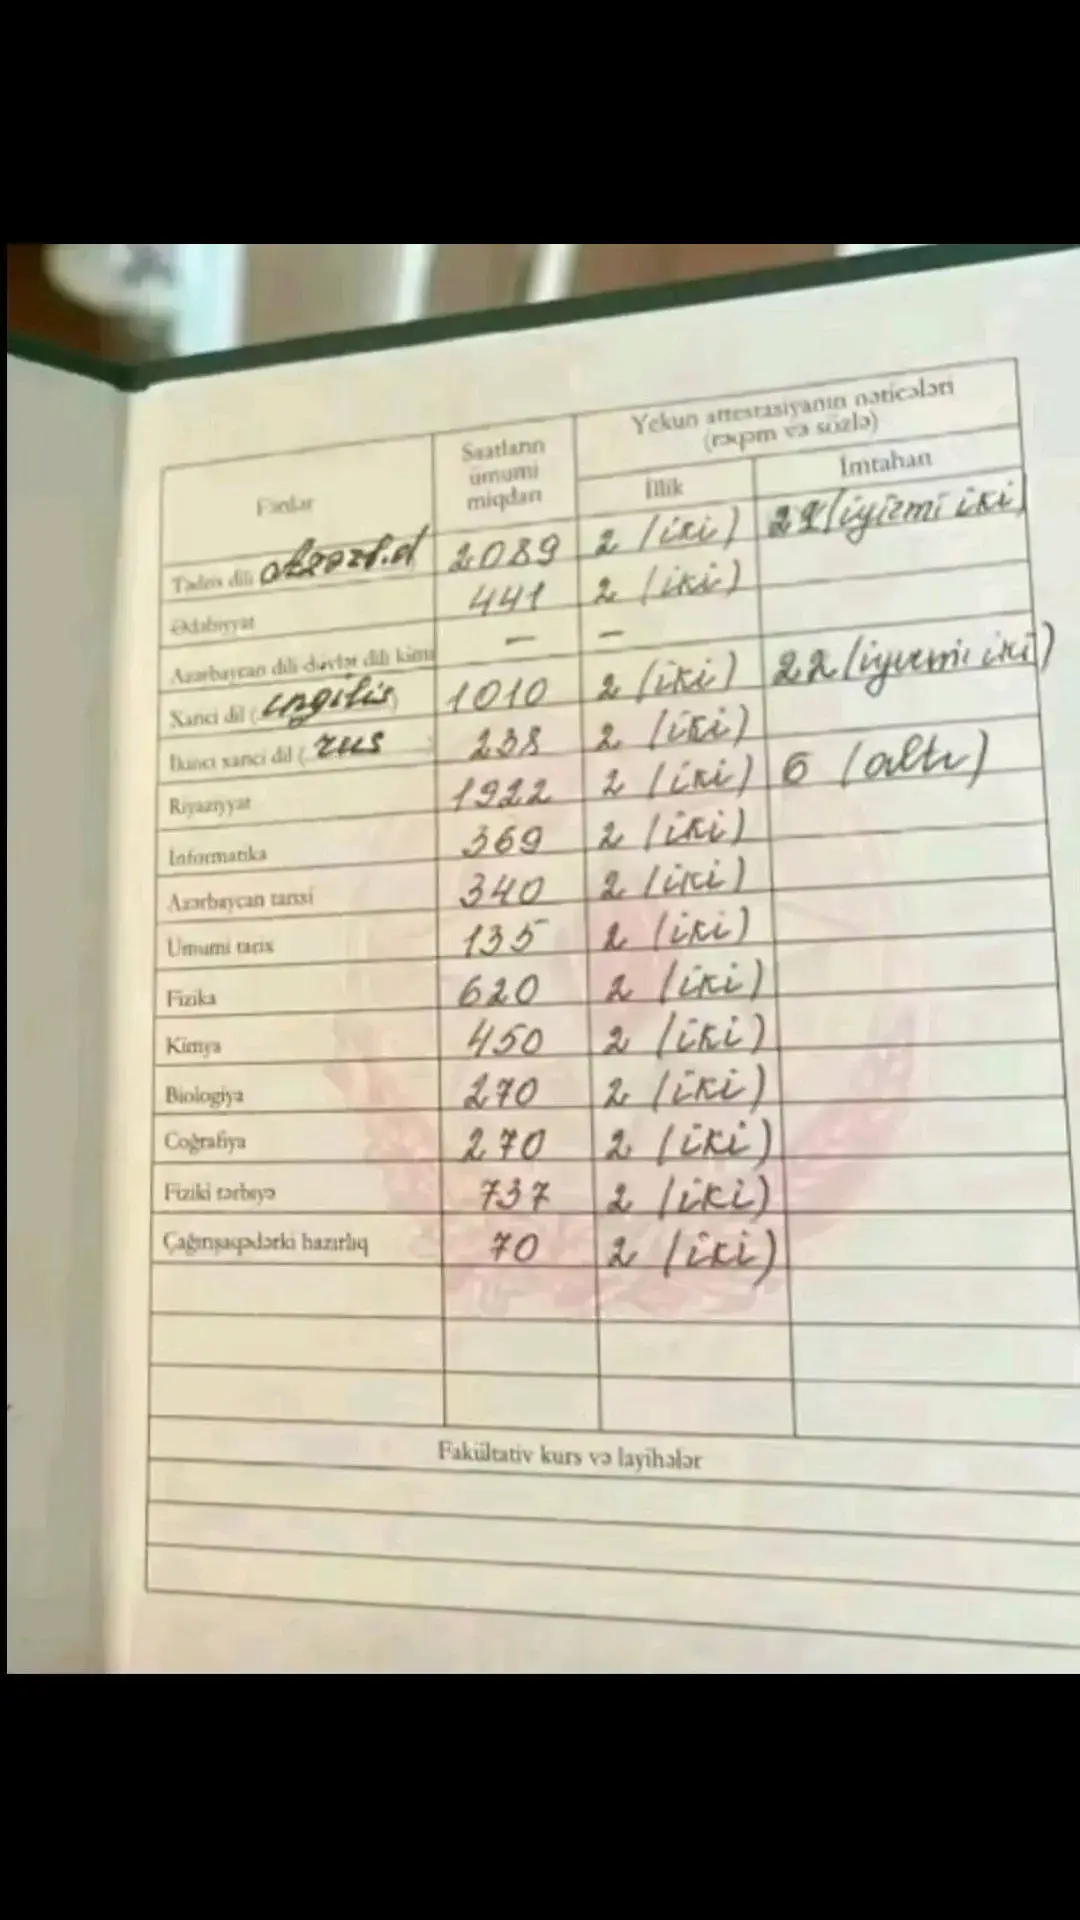 Fənlər
Saatların ümumi miqdarı
Yekun attestasiyanın nəticələri
(rəqəm və sözlə)
İllik
İmtahan
Tədris dili Azərb.d 2089 2 (iki) 22 (iyirmi iki)
Ədəbiyyat 441 2 (iki)
Azərbaycan dili dövlət dili kimi – –
Xarici dil (ingilis) 1010 2 (iki) 22 (iyirmi iki)
İkinci xarici dil (rus 238 2 (iki)
Riyaziyyat 1922 2 (iki) 6 (altı)
İnformatika 369 2 (iki)
Azərbaycan tarixi 340 2 (iki)
Ümumi tarix 135 2 (iki)
Fizika 620 2 (iki)
Kimya 450 2 (iki)
Biologiya 270 2 (iki)
Coğrafiya 270 2 (iki)
Fiziki tərbiyə 737 2 (iki)
Çağırışaqədərki hazırlıq 70 2 (iki)
Fakültativ kurs və layihələr